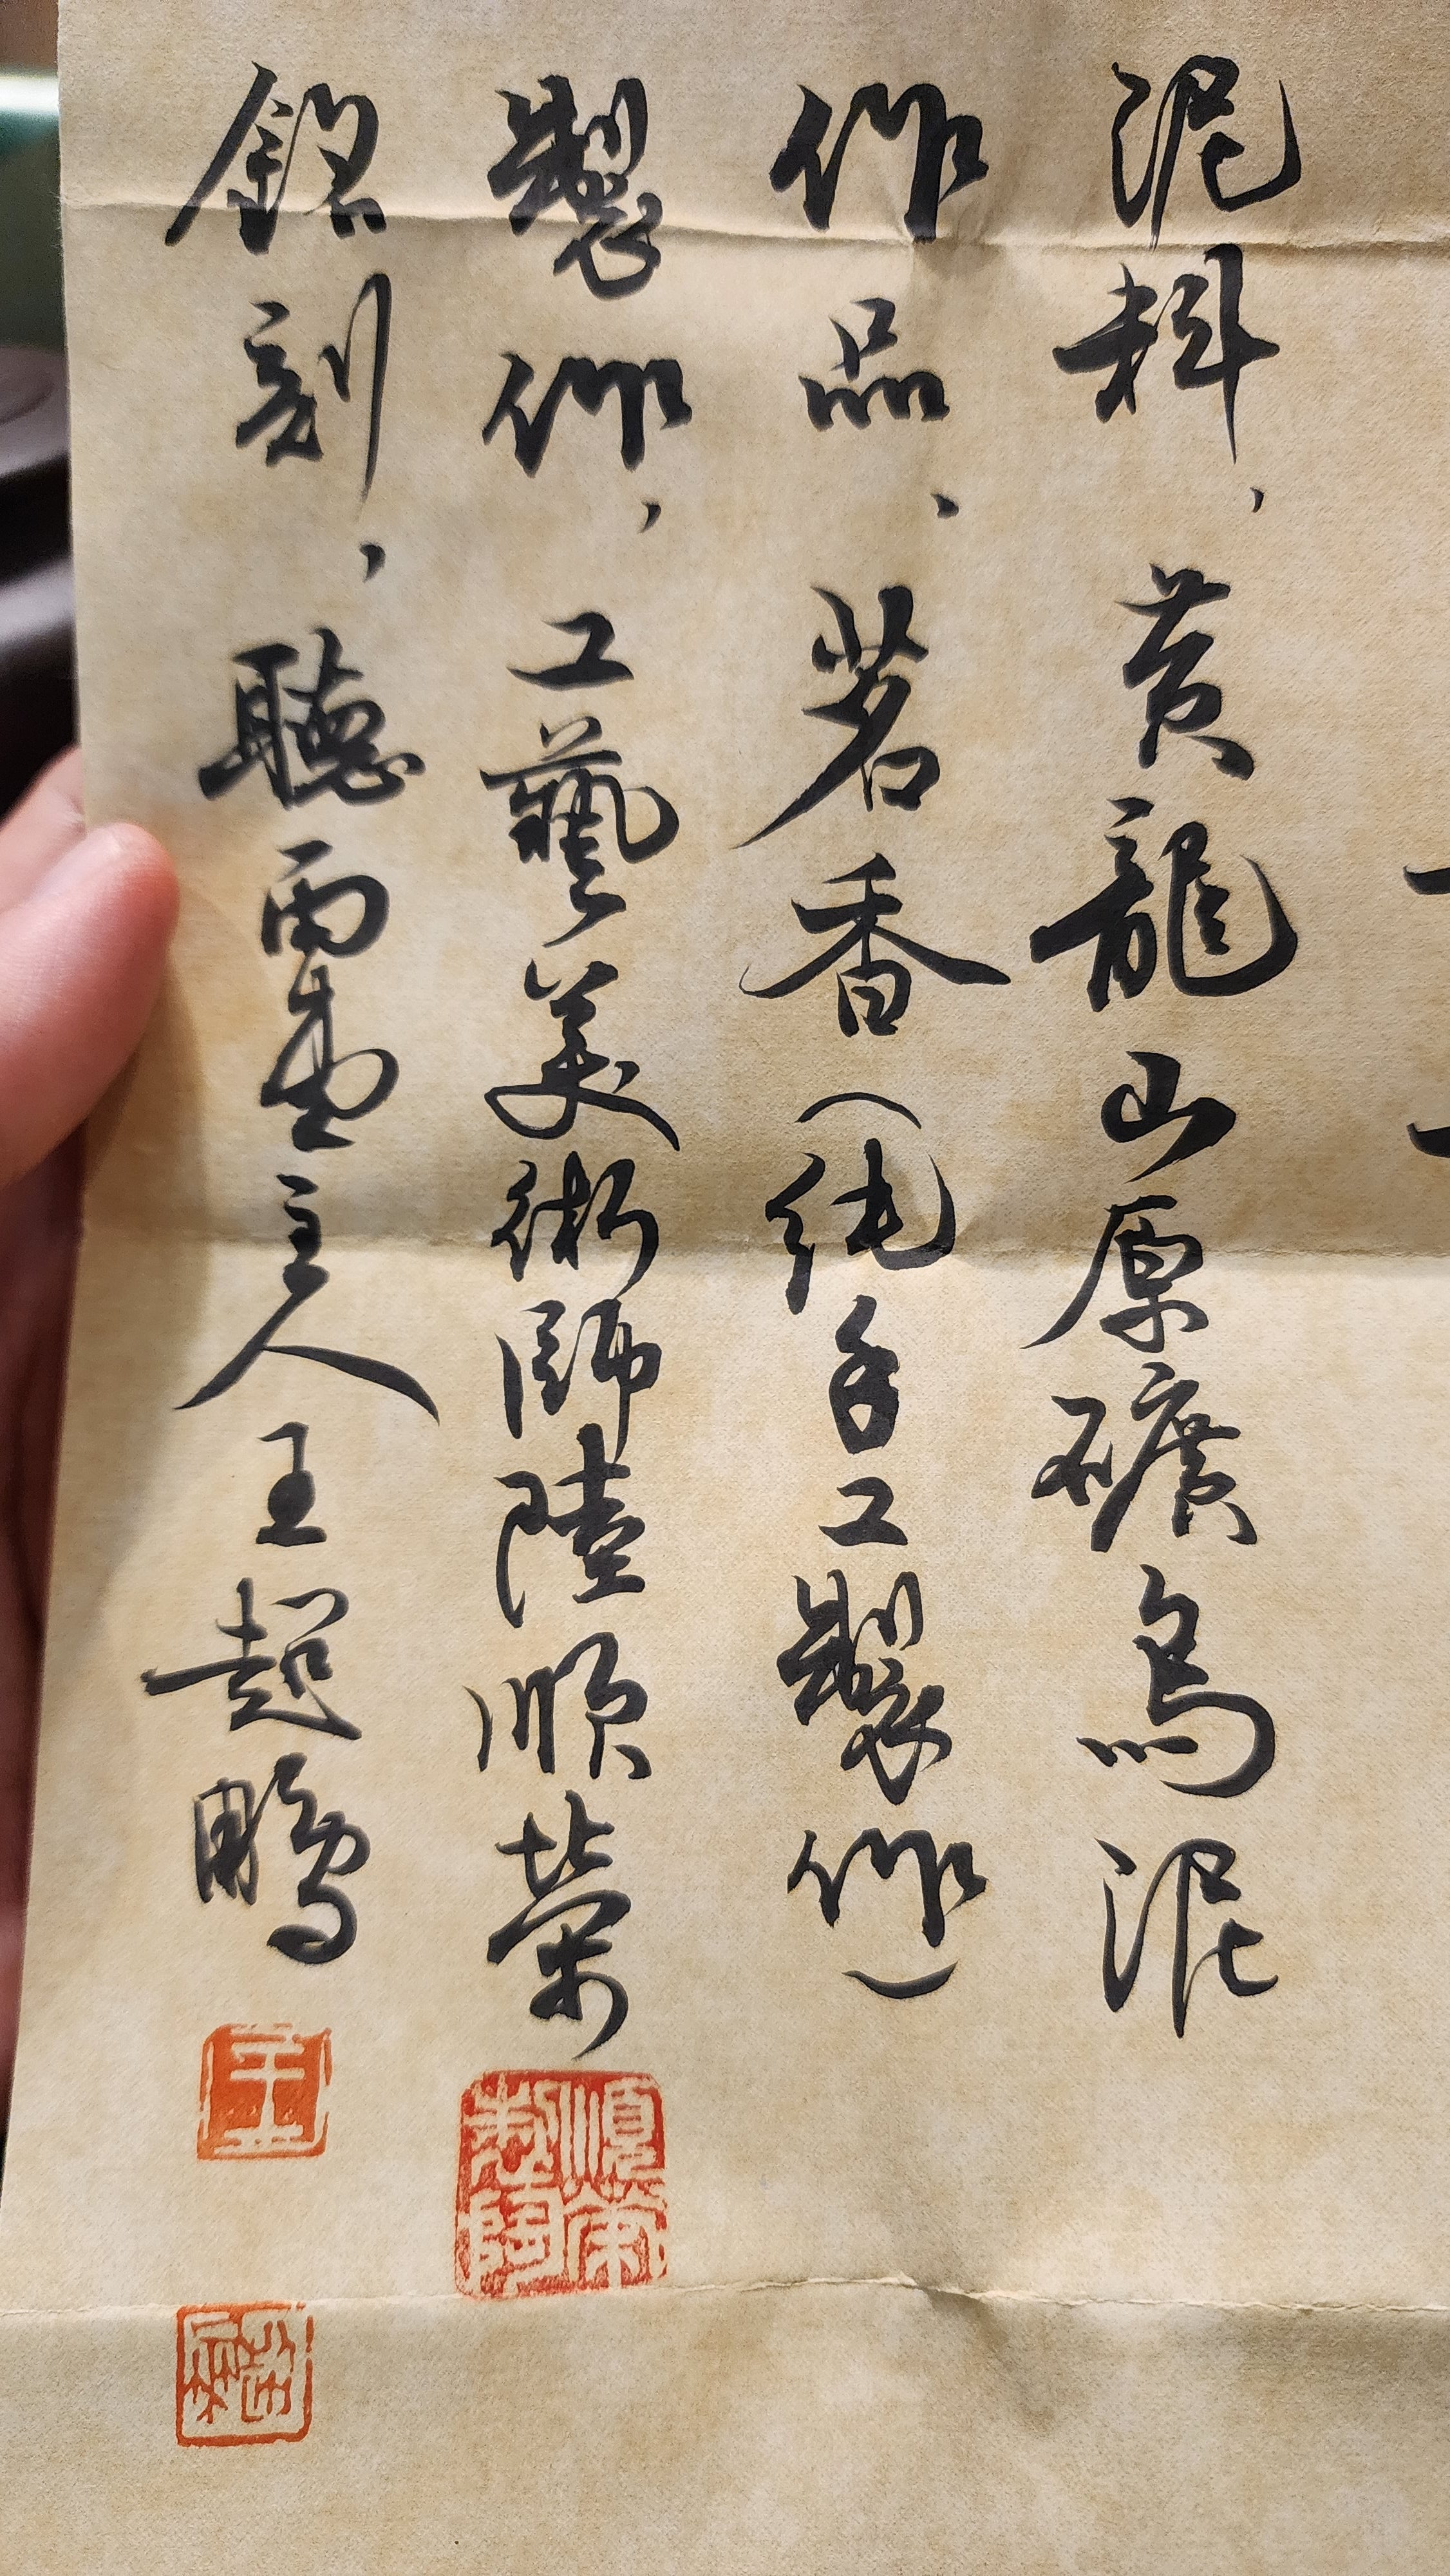 泥料，黄龍山原礦烏泥
作品、茗香（純手工製作）
製作，工藝美術師陸順榮
銘刻，聽雨軒主人王超鵬
順榮製陶
王
超鵬